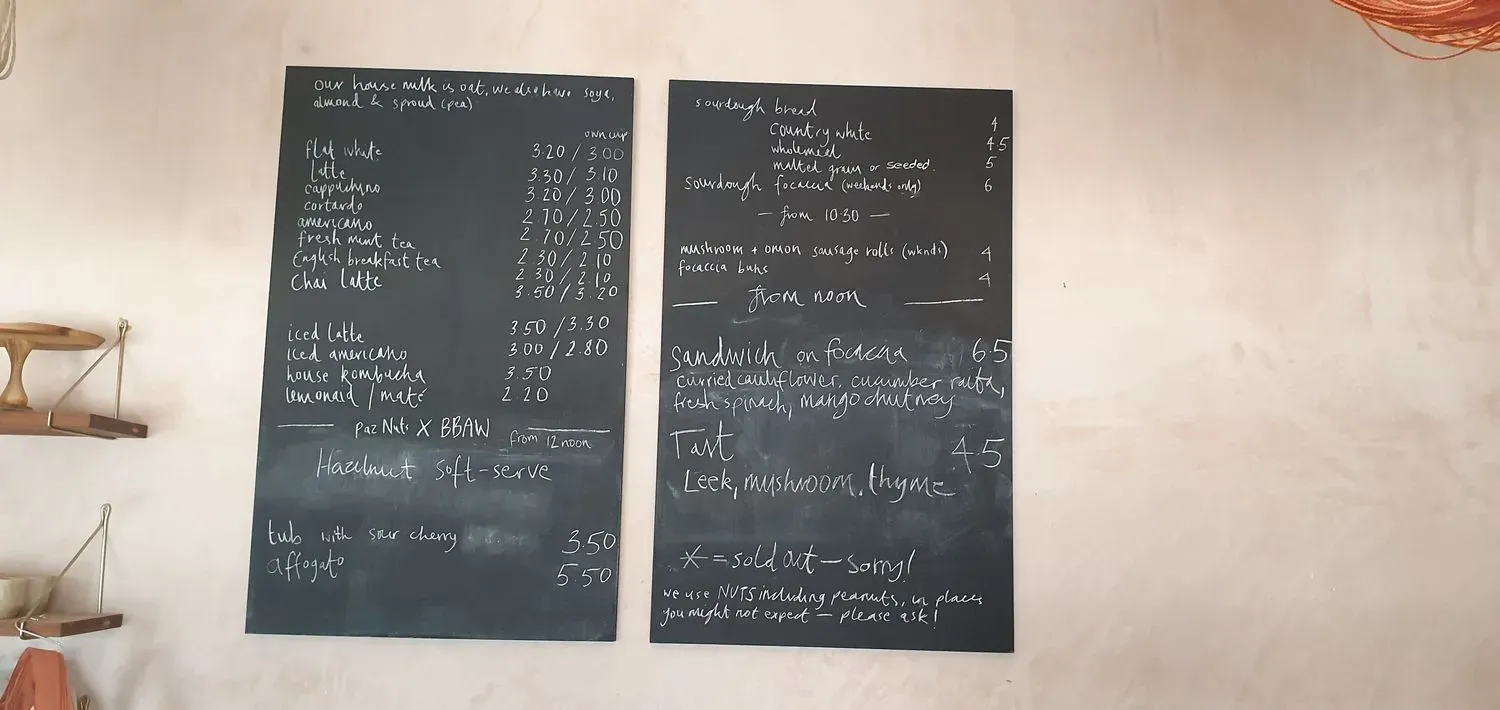 our house milk is oat, we also have soya,
almond & sproud (pea)
own cup
flat white 3.20 / 3.00
latte 3.30 / 3.10
cappuchino 3.20 / 3.00
cortardo 2.70 / 2.50
americano 2.70 / 2.50
fresh mint tea 2.30 / 2.10
English breakfast tea 2.30 / 2.10
Chai latte 3.50 / 3.20
iced latte 3.50 / 3.30
iced americano 3.00 / 2.80
house kombucha 3.50
lemonaid / maté 2.20
paz Nuts X BBAW from 12 noon
Hazelnut soft-serve
tub with sour cherry 3.50
affogato 5.50
sourdough bread
country white 4
wholemeal 4.5
malted grain or seeded. 5
sourdough focaccia (weekends only) 6
— from 10.30 —
mushroom + onion sausage rolls (wknds) 4
focaccia buns 4
— from noon —
Sandwich on focaccia 6.5
curried cauliflower, cucumber raita,
fresh spinach, mango chutney
Tart 4.5
Leek, mushroom, thyme
* = sold out — sorry!
we use NUTS including peanuts, in places
you might not expect — please ask!